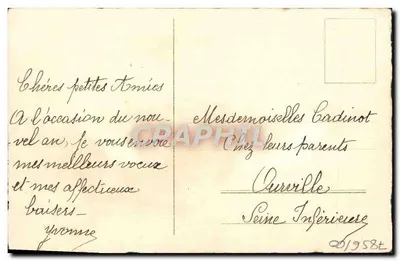 Chéres petites Amies
A l'occasion du nou-
vel an, je vous envoie
mes meilleurs voeux
et mes affectueux
baisers-
Yvonne
Mesdemoiselles Cadinot
Chez leurs parents
Ourville
Seine Inférieure
CPAPHIL